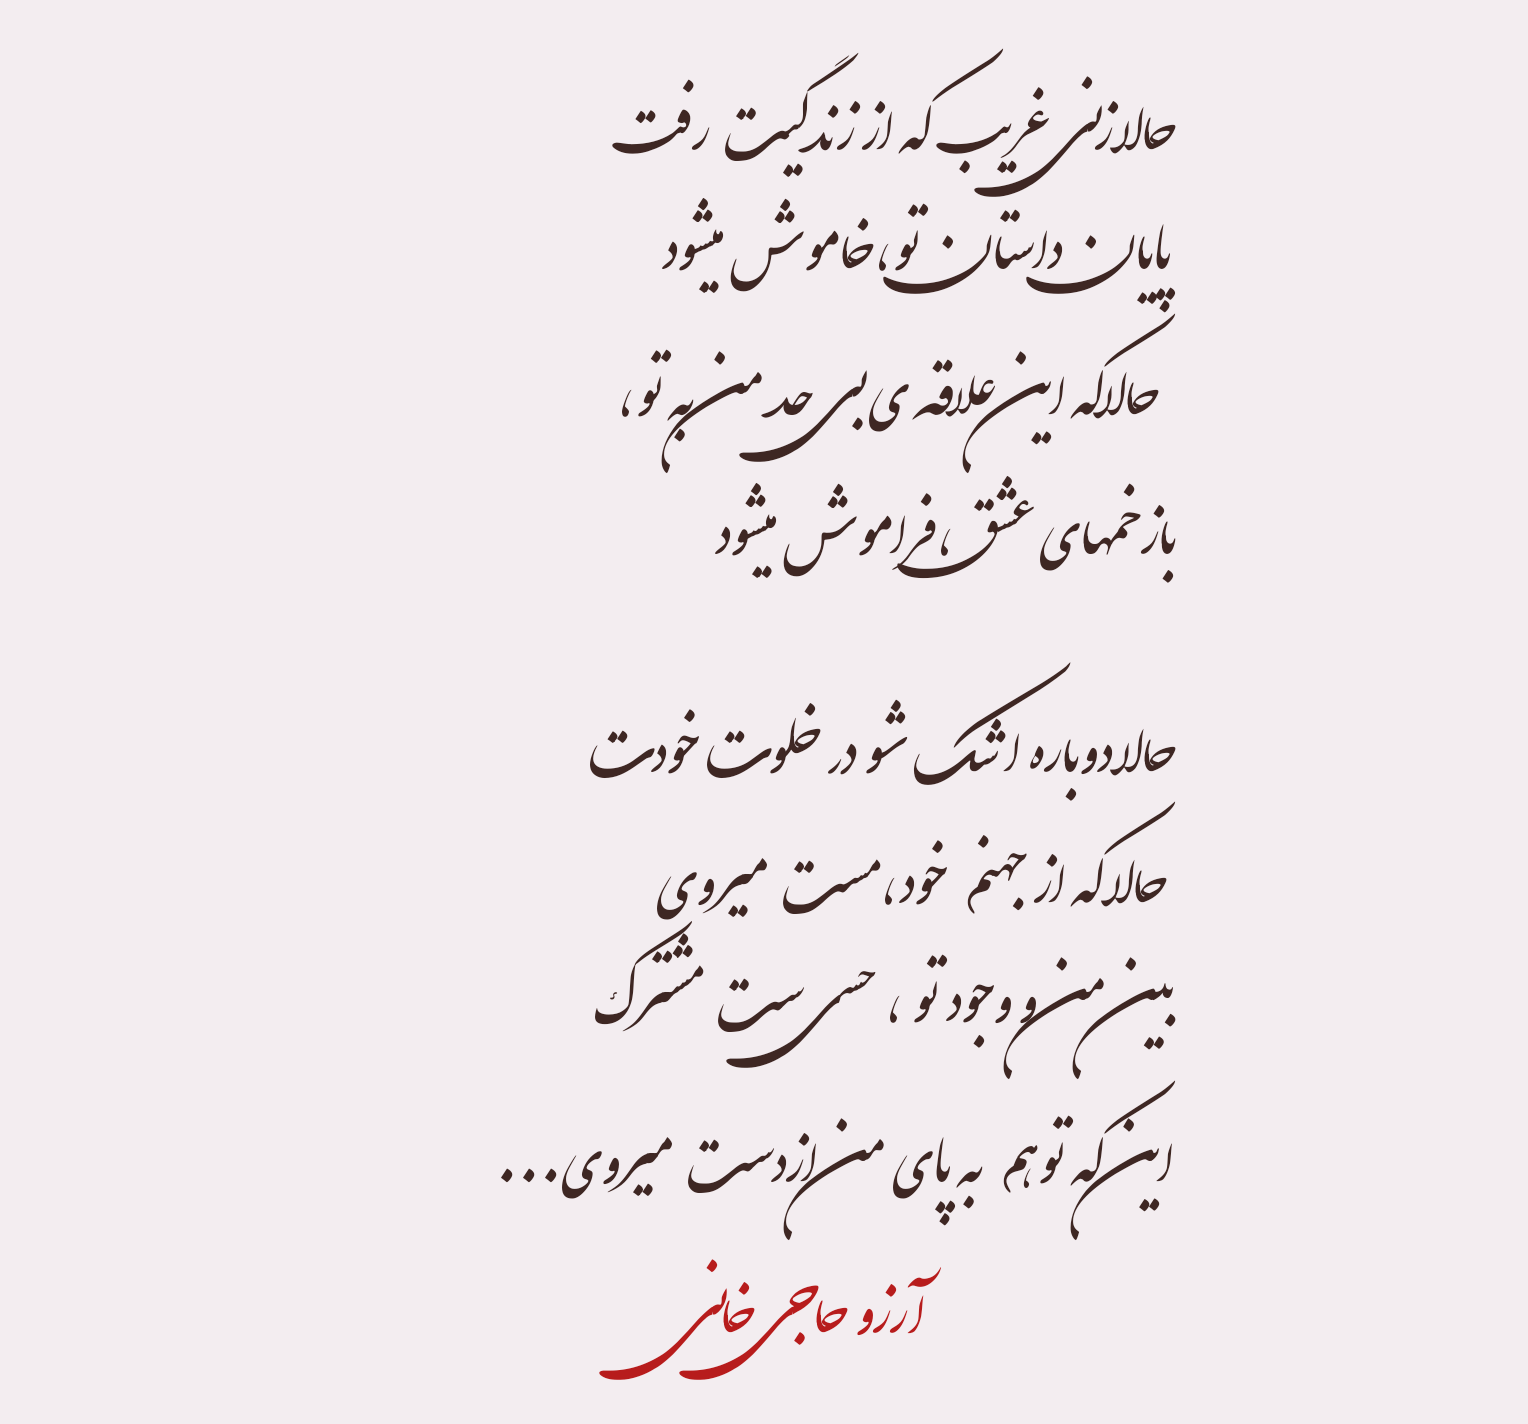 حالا زنی غریب که از زندگیت رفت
پایان داستان تو، خاموش میشود
حالا که این علاقه ی بی حد من به تو،
با زخمهای عشق، فراموش میشود
حالا دوباره اشک شو در خلوت خودت
حالا که از جهنم خود، مست میروی
بین من و وجود تو ، حسی ست مشترک
این که تو هم به پای من از دست میروی...
آرزو حاجی خانی